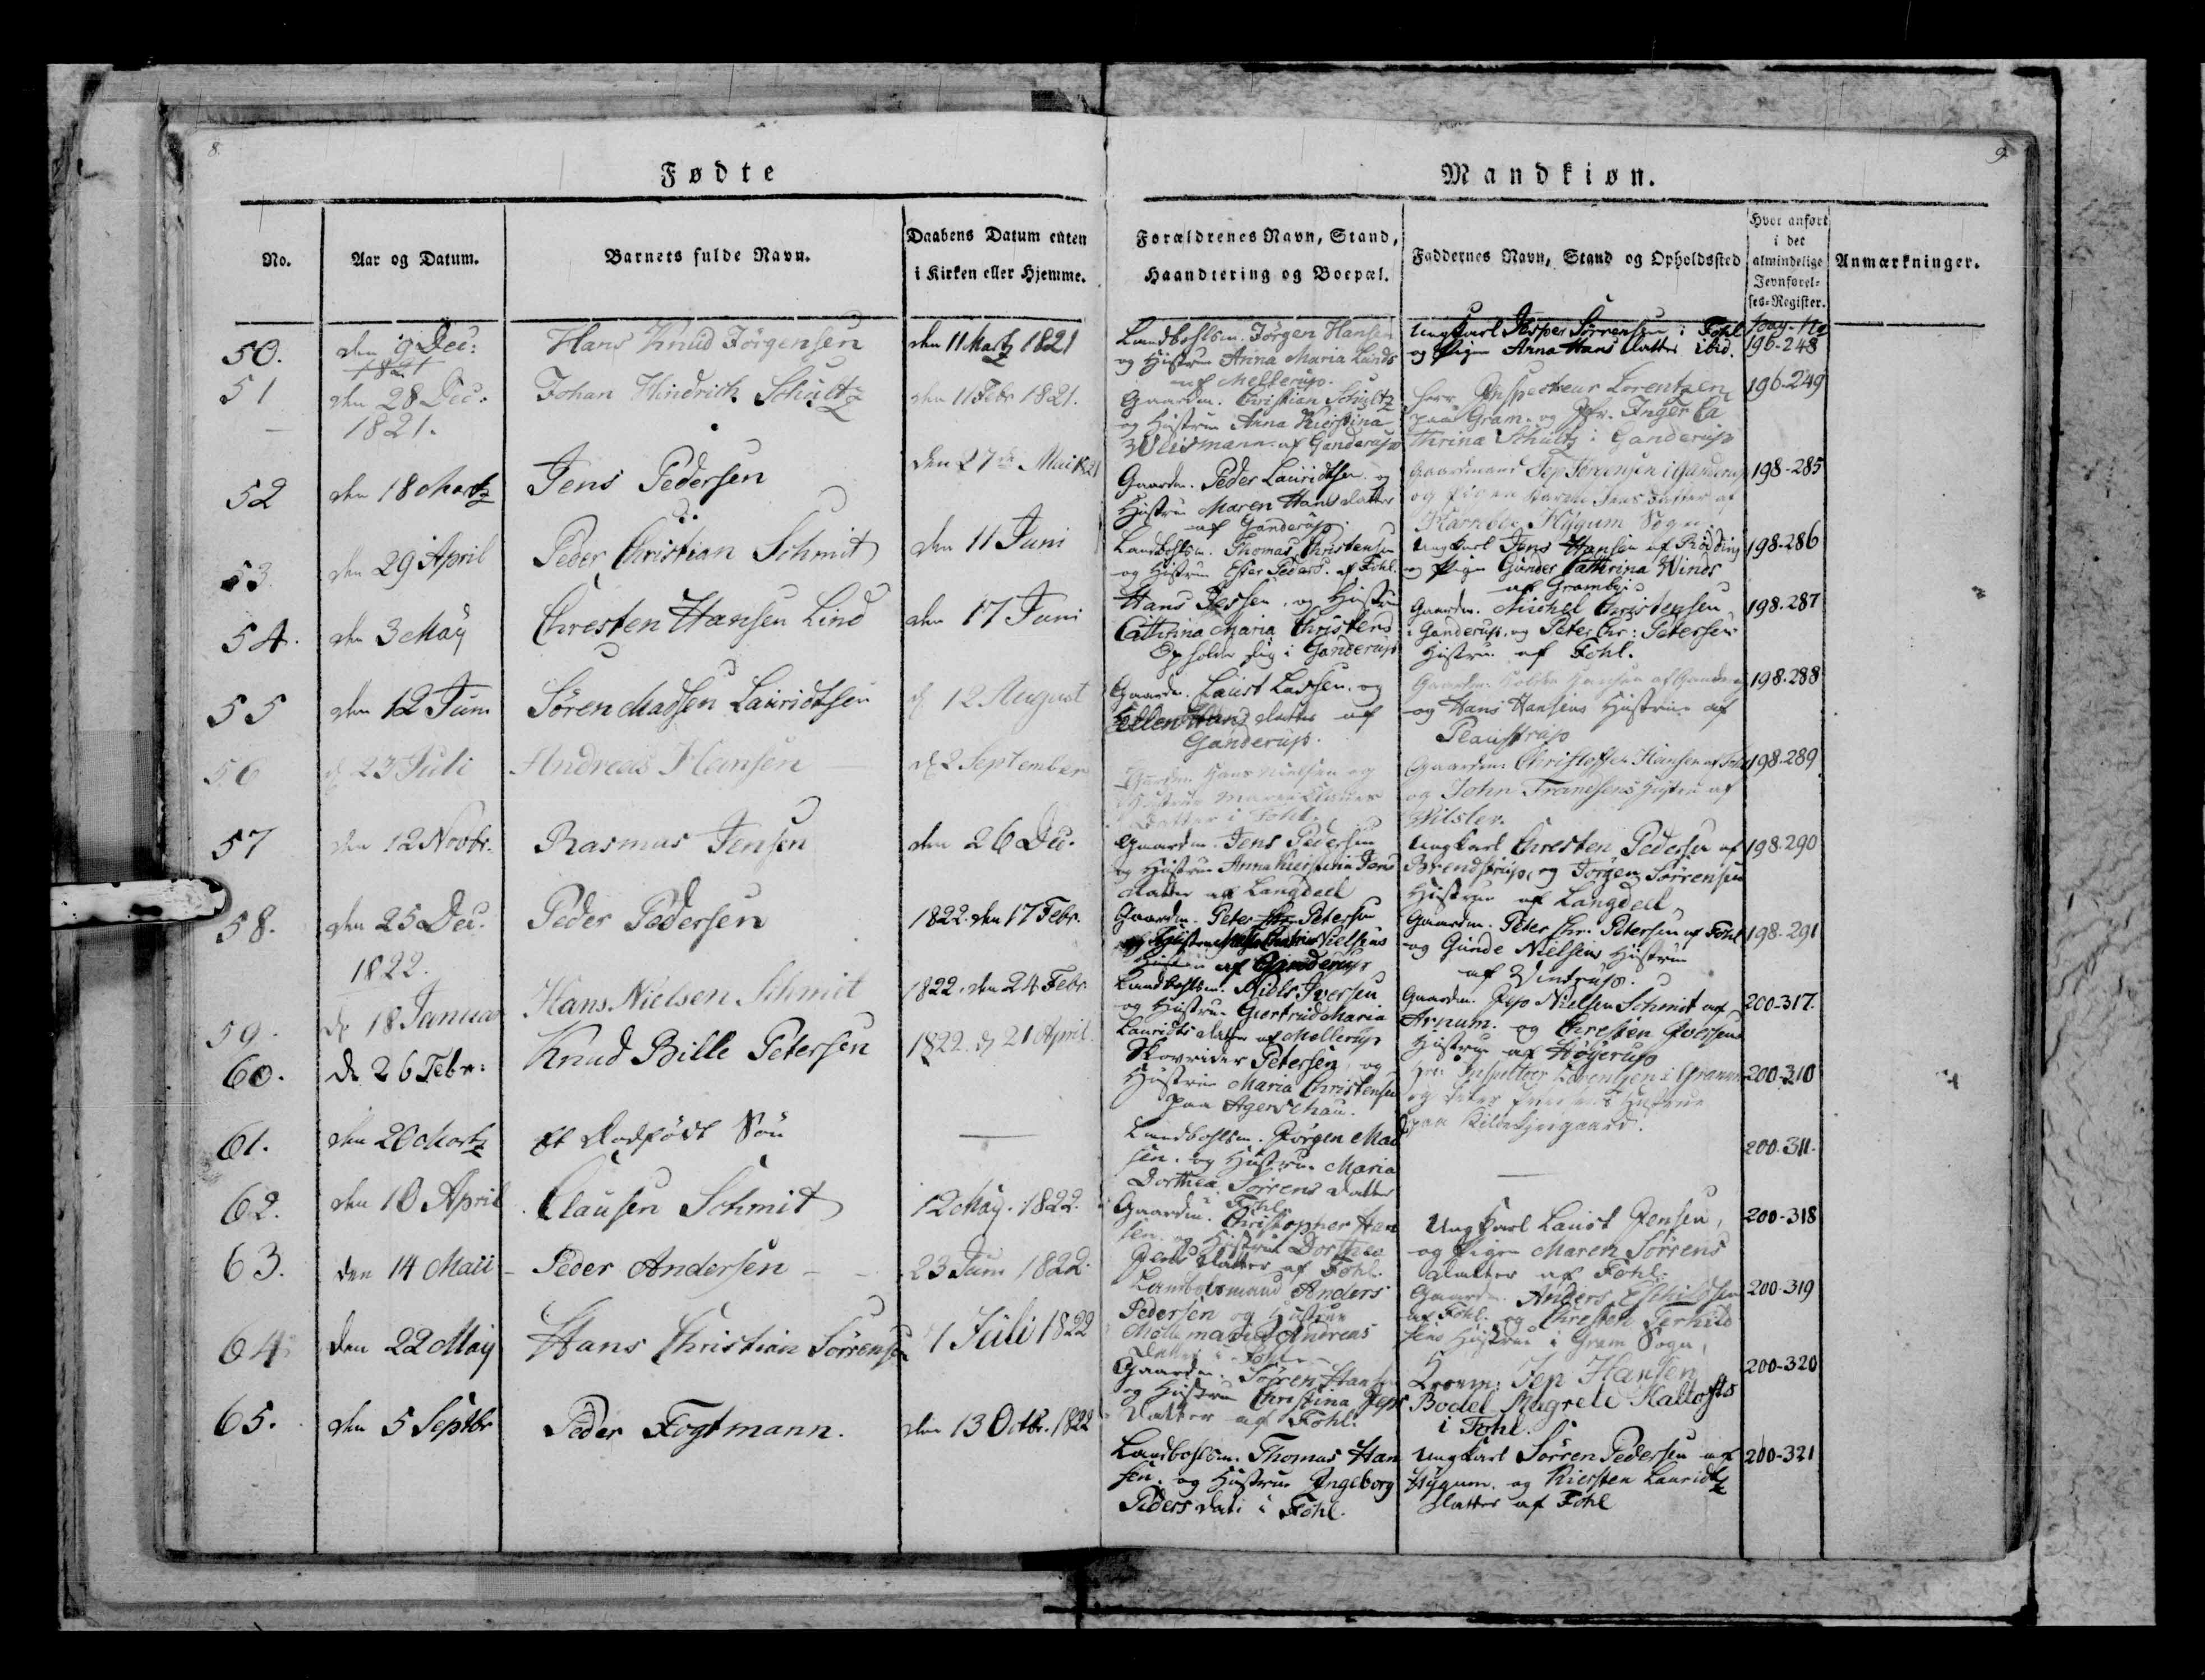 8.
9.
Fødte
Mandkiøn.
No.
Aar og Datum.
Barnets fulde Navn.
Daabens Datum enten
i Kirken eller Hjemme.
Forældrenes Navn, Stand,
Haandtering og Boepæl.
Faddernes Navn, Stand og Opholdssted
Hvor anført
i det
almindelige
Jevnførel-
ses-Register.
Anmærkninger.
pag. No
50.
den 9 Dec:
Hans Knud Jörgensen
den 11 Martz 1821
Landbohlsm. Jörgen Hansen
og Hustrue Anna Maria Lunds
af Mellerup.
Ungkarl Jesper Sörrensen i Fohl
og Pigen Anna Hans Datter ibid.
196-248
51
1821
den 28 Dec:
1821.
Johan Hindrich Schultz
den 11 Febr 1821.
Gaardm. Christian Schultz
og Hustrue Anna Kierstina
Weismann af Ganderup
Herr Inspecteur Lorentzen
paa Gram. og Jfr. Inger Ca
thrina Schultz i Ganderup
196-249
52
den 18 Martz
Jens Pedersen
den 27de Mai 1821
Gaardm. Peder Lauridtsen og
Hustru Maren Hans datter
af Ganderup.
Gaardmand Jep Sörensen i Ganderup
og Pigen Karen Jens Datter af
Hygum Sogn
198-285
53.
den 29 April
Peder Christian Schmit
den 11 Juni
Landbohlsm. Thomas Christensen
og Hustrue Ester Peders. af Fohl.
Ungkarl Jens Hansen af Rödding
og Pigen Gunder Cathrina Winds
af Grambÿ
198-286
54.
den 3 Maÿ
Chresten Hansen Lind
den 17 Juni
Hans Jessen, og Hustru
Cathrina Maria Christens
Opholder sig i Ganderup
Gaardm. Michel Christensen
i Ganderup. og Peter Chr: Petersens
Hustrue af Fohl.
198.287
55
den 12 Juni
Sören Madsen Lauridtsen
d. 12 August
Gaardm. Laust Lassen. og
Ellen Hans datter af
Ganderup.
Gaardm. Hansen af Ganderup
og Hans Hansens Hustrue af
Plaustrup
198.288
56
d. 23 Juli
Andreas Hansen
d. 2 September
Gaardm. Hans Nielsen og
Hustrue Maren Claues
Datter i Fohl.
Gaardm: Christoffer Hansen af Fohl
og John Frandsens Hustru af
Hilslev.
198.289
57
den 12 Novbr.
Rasmus Jensen
den 26 Dec.
Gaardm. Jens Pedersen
og Hustrue Anna Kierstina Jens
datter af Langdeel
Ungkarl Chresten Pedersen af
Brendstrup, og Jörgen Sörrensens
Hustrue af Langdeel
198.290
58.
den 25 Dec.
Peder Pedersen
1822. den 17 Febr.
Gaardm. Peter Chr Petersen
og Hustrue Nielsens
af Ganderup
Gaardm. Peter Chr. Petersen af Fohl
og Gunde Nielsens Hustrue
af Wintrup.
198-291
1822.
59.
d. 18 Januar
Hans Nielsen Schmit
1822. den 24 Febr.
Landbohlsm. Niels Iversen
og Hustrue Giertrud Maria
Lauridts datter af Mellerup
Gaardm. Jep Nielsen Schmit af
Arnum. og Chresten Iversens
Hustrue af Höÿerup
200-317.
60.
d. 26 Febr:
Knud Bille Petersen
1822. d. 21 April.
Skovrider Petersen, og
Hustrue Maria Christensen
paa Agerschau.
Herr Inspecteur Lorentzen i Gramm
og Peter Hustrue
paa Kildebjergaard.
200-310
61.
den 20 Martz
Et Dødfödt Sön
Landbohlsm. Jörgen Mad
sen. og Hustrue Maria
Dorthea Sörrens datter
i Fohl.
200.311.
62.
den 10 April
Clausen Schmit
12 Maÿ. 1822.
Gaardm. Christopher Han
sen. og Hustrue Dorthea
Jens datter af Fohl.
Ungkarl Laust Jensen,
og Pigen Maren Sörrens
datter af Fohl.
200-318
63.
den 14 Maii
Peder Andersen
23 Juni 1822.
Landbolsmand Anders
Pedersen og Hustrue
Andreas
Datter i Fohl
Gaardm. Anders Eschildsen
af Fohl. og Chresten Terkild
sens Hustrue i Gram Sogn,
200-319
64.
den 22 Maÿ
Hans Christian Sörrensen
7 Juli 1822
Gaardm. Sörren Hansen
og Hustrue Christina Jeps
Datter af Fohl.
Kroem: Jep Hansen
Bodel Magrete Kaltofts
i Fohl.
200-320
65.
den 5 Septbr
Peder Fogtmann.
den 13 Octbr. 1822
Landbohlsm. Thomas Han
sen. og Hustrue Ingeborg
Peders dat. i Fohl.
Ungkarl Sörren Pedersen af
Hÿgum. og Kiersten Lauridtz
datter af Fohl
200-321